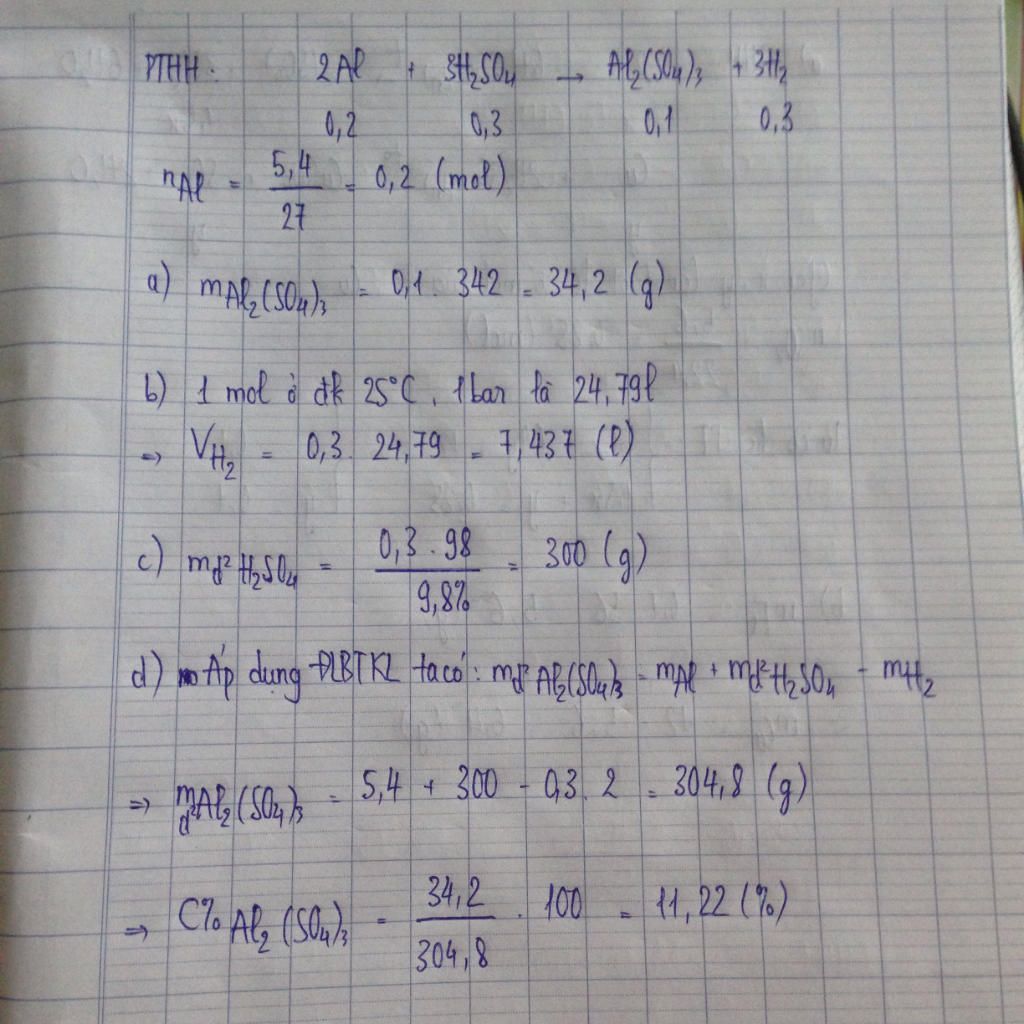 PTHH. 2Al + 3H₂SO₄ → Al₂(SO₄)₃ + 3H₂
0,2 0,3 0,1 0,3
nAl = 5,4 / 27 = 0,2 (mol)
a) mAl₂(SO₄)₃ = 0,1 . 342 = 34,2 (g)
b) 1 mol ở đk 25°C, 1 bar là 24,79l
=> VH₂ = 0,3 . 24,79 = 7,437 (l)
c) md² H₂SO₄ = 0,3 . 98 / 9,8% = 300 (g)
d) Áp dụng ĐLBTKL ta có: md² Al₂(SO₄)₃ = mAl + md² H₂SO₄ - mH₂
=> md² Al₂(SO₄)₃ = 5,4 + 300 - 0,3 . 2 = 304,8 (g)
=> C% Al₂(SO₄)₃ = 34,2 / 304,8 . 100 = 11,22 (%)